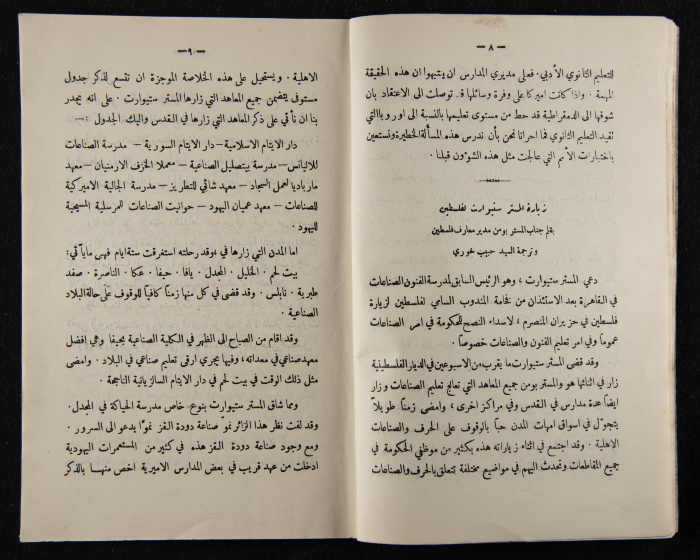 — ٨ —
للتعليم الثانوي الأدبي. فعلى مديري المدارس ان ينتبهوا ان هذه الحقيقة
المهمة. واذا كانت اميركا على وفرة وسائلها قد توصلت الى الاعتقاد بان
شوقها الى الدمقراطية قد حط من مستوى تعليمها بالنسبة الى اوروبا التي
تقيد التعليم الثانوي فما احرانا نحن بأن ندرس هذه المسألة الخطيرة ونستعين
باختبارات الأمم التي عالجت مثل هذه الشؤون قبلنا.
زيارة المستر ستيوارت لفلسطين
بقلم جناب المستر بومن مدير معارف فلسطين
وترجمة السيد حبيب خوري
دعي المستر ستيوارت، وهو الرئيس السابق لمدرسة الفنون الصناعات
في القاهرة بعد الاستئذان من فخامة المندوب السامي لفلسطين لزيارة
فلسطين في حزيران المنصرم، لاسداء النصح للحكومة في امر الصناعات
عموماً وفي امر تعليم الفنون خصوصاً.
وقد قضى المستر ستيوارت ما يقرب من الاسبوعين في الديار الفلسطينية
زار في اثنائها هو والمستر بومن جميع المعاهد التي تعالج تعليم الصناعات وزار
ايضاً عدة مدارس في القدس وفي مراكز اخرى، وامضى زمناً طويلاً
يتجول في اسواق امهات المدن حباً بالوقوف على الحرف والصناعات
الاهلية. وقد اجتمع في اثناء زياراته هذه بكثير من موظفي الحكومة في
جميع المقاطعات وتحدث اليهم في مواضيع مختلفة تتعلق بالحرف والصناعات
— ٩ —
الاهلية. ويستحيل على هذه الخلاصة الموجزة ان تتسع لذكر جدول
مستوفى يتضمن جميع المعاهد التي زارها المستر ستيوارت. على انه يجدر
بنا ان نأتي على ذكر المعاهد التي زارها في القدس واليك الجدول :—
دار الايتام الاسلامية — دار الايتام السورية — مدرسة الصناعات
للاليانس — مدرسة بيتصليل الصناعية — معملا الخزف الارمنيان — معهد
مارباديا لعمل السجاد — معهد شاني للتطريز — مدرسة الجالية الاميركية
للصناعات — معهد عميان اليهود — حوانيت الصناعات للمرسلية المسيحية
لليهود.
اما المدن التي زارها في، وقد رحلته استغرقت ستة ايام فهي ما يأتي:
بيت لحم. الخليل. المجدل. يافا. حيفا. عكا. الناصرة. صفد
طبرية. نابلس. وقد قضى في كل منها زمناً كافياً للوقوف على حالة البلاد
الصناعية.
وقد اقام من الصباح الى الظهر في الكلية الصناعية بحيفا وهي افضل
معهد صناعي في معداته، وفيها يجري ارقى تعليم صناعي في البلاد. وامضى
مثل ذلك الوقت في بيت لحم في دار الايتام السالزيانية الناجحة.
ومما شاق المستر ستيوارت بنوع خاص مدرسة الحياكة في المجدل.
وقد لفت نظر هذا الزائر نمو صناعة دودة القز نمواً يدعو الى السرور.
ومع وجود صناعة دودة القز هذه في كثير من المستعمرات اليهودية
ادخلت من عهد قريب في بعض المدارس الاميرية اخص منها بالذكر